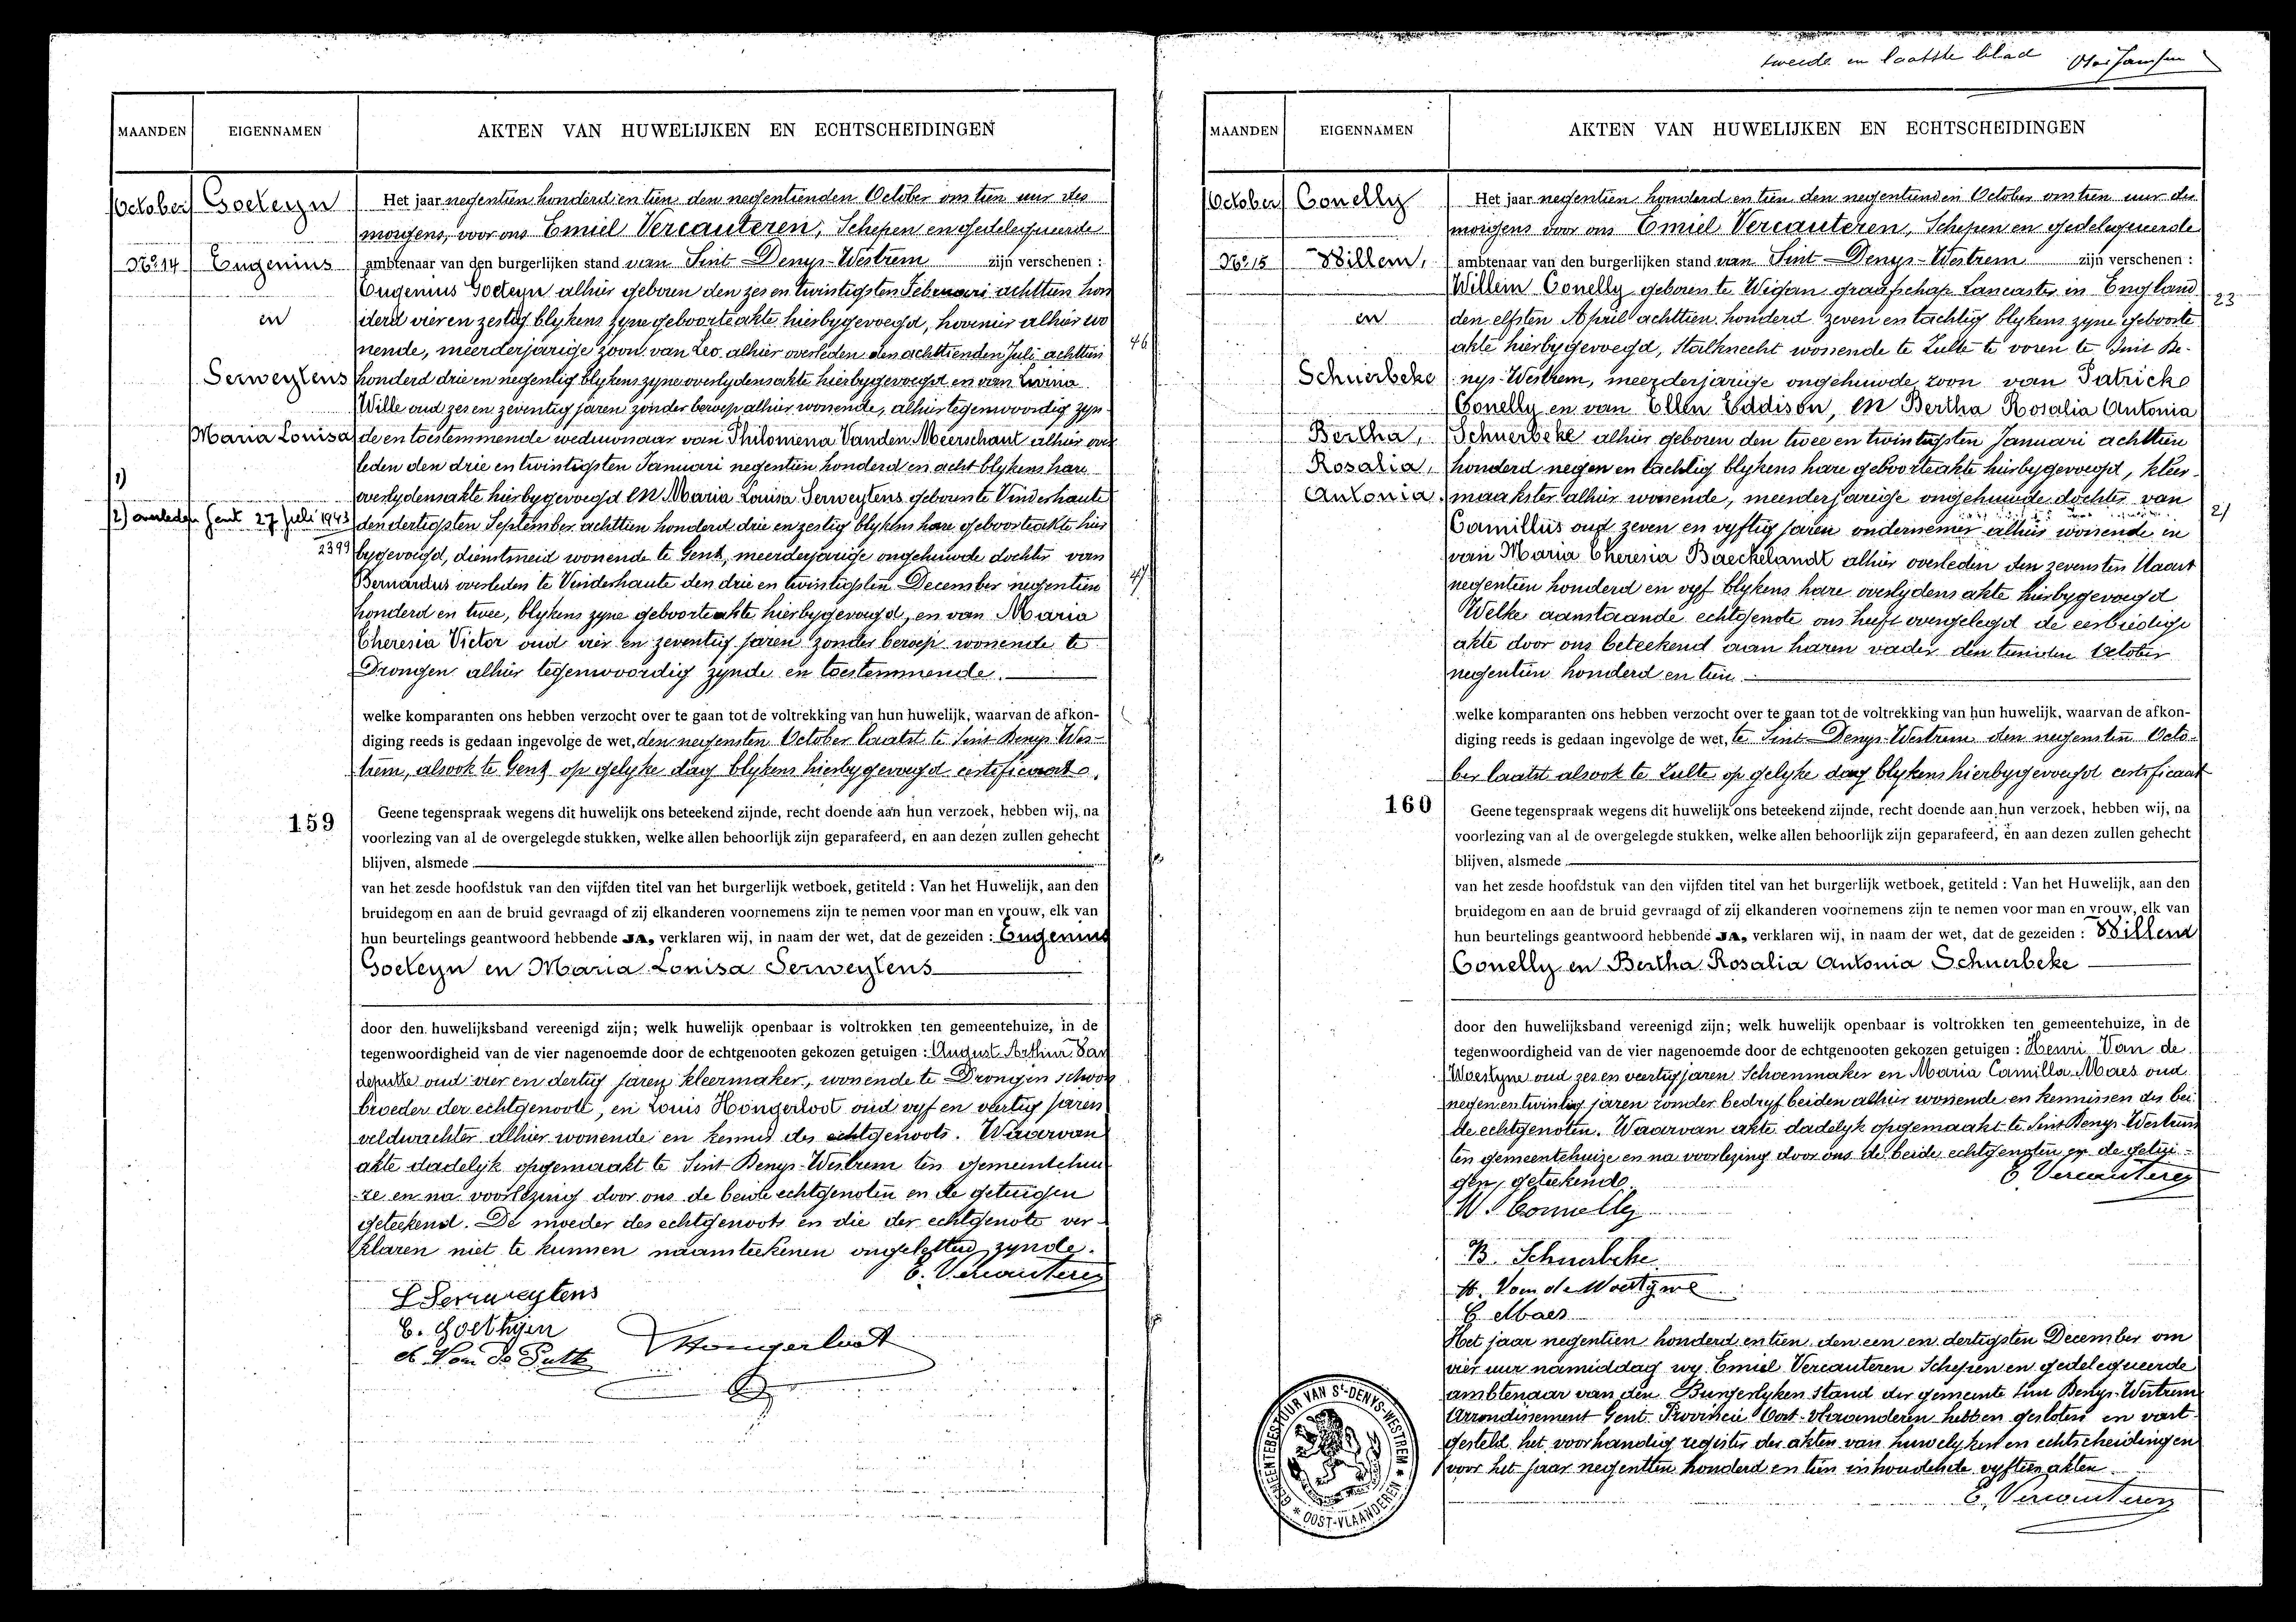 tweede en laatste blad
MAANDEN EIGENNAMEN AKTEN VAN HUWELIJKEN EN ECHTSCHEIDINGEN
October
No 14
Goeteyn
Eugenius
en
Serweytens
Maria Louisa
1)
2) overleden Gent 27 Juli 1943
2399
Het jaar negentien honderd en tien den negentienden October om tien uur des
morgens, voor ons Emiel Vercauteren, Schepen en gedelegueerde
ambtenaar van den burgerlijken stand van Sint-Denys-Westrem zijn verschenen :
Eugenius Goeteyn alhier geboren den zes en twintigsten Februari achttien hon
derd vier en zestig blykens zyne geboorteakte hierbygevoegd, hovenier alhier wo
nende, meerderjarige zoon van Leo alhier overleden den achttienden Juli achttien
honderd drie en negentig blykens zyne overlydensakte hierbygevoegd en van Livina
Wille oud zes en zeventig jaren zonder beroep alhier wonende, alhier tegenwoordig zyn
de en toestemmende weduwnaar van Philomena Vanden Meerschaut alhier over
leden den drie en twintigsten Januari negentien honderd en acht blykens hare
overlydensakte hierbygevoegd en Maria Louisa Serweytens geboren te Vinderhaute
den dertigsten September achttien honderd drie en zestig blykens hare geboorteakte hier
bygevoegd, dienstmeid wonende te Gent, meerderjarige ongehuwde dochter van
Bernardus overleden te Vinderhaute den drie en twintigsten December negentien
honderd en twee, blykens zyne geboorteakte hierbygevoegd, en van Maria
Theresia Victor oud vier en zeventig jaren zonder beroep wonende te
Drongen alhier tegenwoordig zynde en toestemmende.
46
47
welke komparanten ons hebben verzocht over te gaan tot de voltrekking van hun huwelijk, waarvan de afkon-
diging reeds is gedaan ingevolge de wet, den negensten October laatst te Sint Denys-Wes-
trem, alsook te Gent op gelyke dag blykens hierbygevoegd certificaat.
159
Geene tegenspraak wegens dit huwelijk ons beteekend zijnde, recht doende aan hun verzoek, hebben wij, na
voorlezing van al de overgelegde stukken, welke allen behoorlijk zijn geparafeerd, en aan dezen zullen gehecht
blijven, alsmede
van het zesde hoofdstuk van den vijfden titel van het burgerlijk wetboek, getiteld : Van het Huwelijk, aan den
bruidegom en aan de bruid gevraagd of zij elkanderen voornemens zijn te nemen voor man en vrouw, elk van
hun beurtelings geantwoord hebbende JA, verklaren wij, in naam der wet, dat de gezeiden : Eugenius
Goeteyn en Maria Louisa Serweytens
door den huwelijksband vereenigd zijn; welk huwelijk openbaar is voltrokken ten gemeentehuize, in de
tegenwoordigheid van de vier nagenoemde door de echtgenooten gekozen getuigen : August Arthur Van
deputte oud vier en dertig jaren kleermaker, wonende te Drongen schoon
broeder der echtgenoote, en Louis Hongerloot oud vyf en veertig jaren
veldwachter alhier wonende en kennis des echtgenoots. Waarvan
akte dadelyk opgemaakt te Sint-Denys-Westrem ten gemeintehui
ze en na voorlezing door ons de beide echtgenoten en de getuigen
geteekend. De moeder des echtgenoots en die der echtgenote ver-
klaren niet te kunnen naamteekenen ongeletterd zynde.
E. Vercauteren
L Serweytens
E. Goethijn
A Van De Putte
Hongerloot
MAANDEN EIGENNAMEN AKTEN VAN HUWELIJKEN EN ECHTSCHEIDINGEN
October
No 15
Conelly
Willem,
en
Schuerbeke
Bertha,
Rosalia,
Antonia.
Het jaar negentien honderd en tien den negentienden October om tien uur des
morgens voor ons Emiel Vercauteren, Schepen en gedelegueerde
ambtenaar van den burgerlijken stand van Sint-Denys-Westrem zijn verschenen :
Willem Conelly geboren te Wigan graafschap Lancaster in England
den elfsten April achttien honderd zeven en tachtig blykens zyne geboorte
akte hierbygevoegd, Stalknecht wonende te Zulte te voren te Sint De-
nys-Westrem, meerderjarige ongehuwde zoon van Patricke
Conelly en van Ellen Eddison, en Bertha Rosalia Antonia
Schuerbeke alhier geboren den twee en twintigsten Januari achttien
honderd negen en tachtig blykens hare geboorteakte hierbygevoegd, kleer-
maakster alhier wonende, meerderjarige ongehuwde dochter van
Camillus oud zeven en vyftig jaren ondernemer alhier wonende en
van Maria Theresia Baeckelandt alhier overleden den zevensten Maart
negentien honderd en vyf blykens hare overlydens akte hierbygevoegd
Welke aanstaande echtgenote ons heeft overgelegd de eerbiedige
akte door ons beteekend aan haren vader den tienden October
negentien honderd en tien
23
2)
welke komparanten ons hebben verzocht over te gaan tot de voltrekking van hun huwelijk, waarvan de afkon-
diging reeds is gedaan ingevolge de wet, te Sint-Denys-Westrem den negensten Octo-
ber laatst alsook te Zulte op gelyke dag blykens hierbygevoegd certificaat
160
Geene tegenspraak wegens dit huwelijk ons beteekend zijnde, recht doende aan hun verzoek, hebben wij, na
voorlezing van al de overgelegde stukken, welke allen behoorlijk zijn geparafeerd, en aan dezen zullen gehecht
blijven, alsmede
van het zesde hoofdstuk van den vijfden titel van het burgerlijk wetboek, getiteld : Van het Huwelijk, aan den
bruidegom en aan de bruid gevraagd of zij elkanderen voornemens zijn te nemen voor man en vrouw, elk van
hun beurtelings geantwoord hebbende JA, verklaren wij, in naam der wet, dat de gezeiden : Willem
Conelly en Bertha Rosalia Antonia Schuerbeke
door den huwelijksband vereenigd zijn; welk huwelijk openbaar is voltrokken ten gemeentehuize, in de
tegenwoordigheid van de vier nagenoemde door de echtgenooten gekozen getuigen : Henri Van de
Woestyne oud zes en veertig jaren Schoenmaker en Maria Camilla Maes oud
negen en twintig jaren zonder bedryf beiden alhier wonende en kennissen der bei
de echtgenoten. Waarvan akte dadelyk opgemaakt te Sint Denys-Westrem
ten gemeentehuize en na voorlezing door ons de beide echtgenoten en de getui-
gen, geteekend.
E. Vercauteren
W. Connelly
B. Schuerbeke
H. Van de Woestyne
C Maes
Het jaar negentien honderd en tien den een en dertigsten December om
vier uur namiddag wy Emiel Vercauteren Schepen en gedelegueerde
ambtenaar van den Burgerlyken stand der gemeente Sint Denys-Westrem
Arrondissement Gent Provincie Oost-Vlaanderen hebben gesloten en vast
gesteld het voorhandig register der akten van huwelyken en echtscheidingen
voor het jaar negentien honderd en tien inhoudende vyftien akten
E. Vercauteren
GEMEENTEBESTUUR VAN St-DENYS-WESTREM
* OOST-VLAANDEREN *